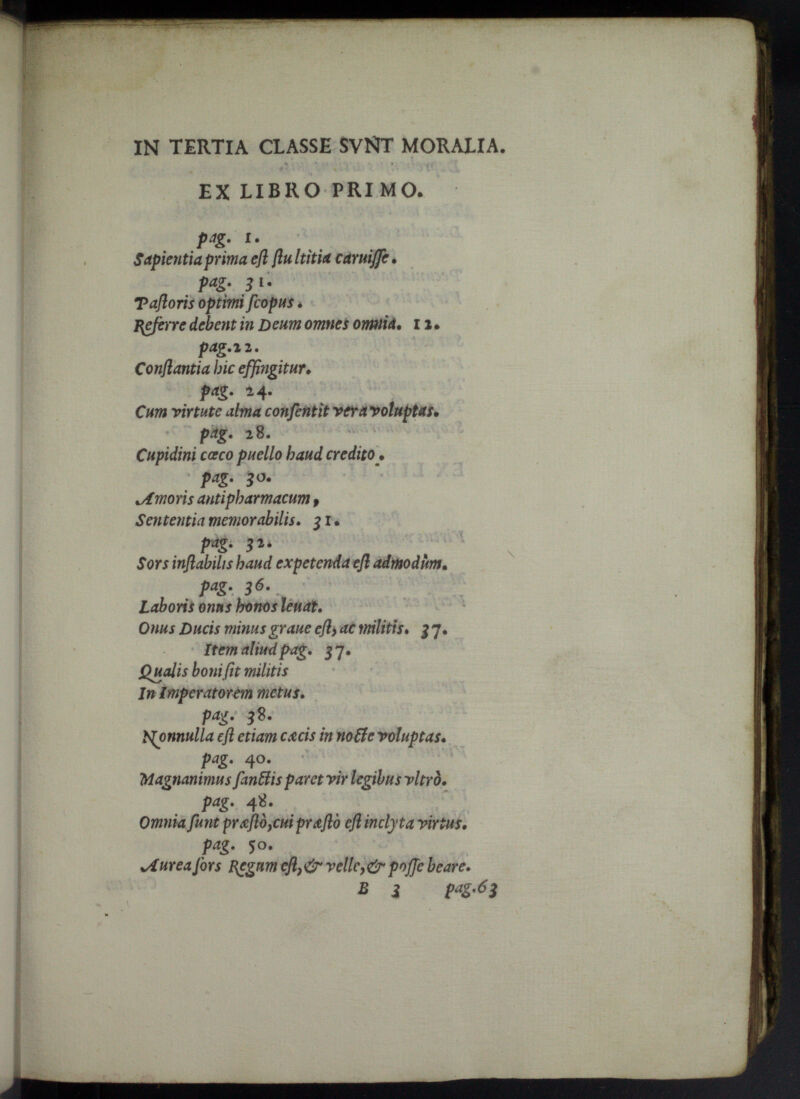 IN TERTIA CLASSE SVNT MORALIA.
EX LIBRO PRIMO.
pag. 1.
Sapientia prima est stultitia caruisse.
pag. 31.
Pastoris optimi scopus.
Referre debent in Deum omnes omnia. 12.
pag. 22.
Constantia hic effingitur.
pag. 24.
Cum virtute alma consentit vera voluptas.
pag. 28.
Cupidini cœco puello haud credito.
pag. 30.
Amoris antipharmacum,
Sententia memorabilis. 31.
pag. 32.
Sors instabilis haud expetenda est admodùm.
pag. 36.
Laboris onus honos leuat.
Onus Ducis minus graue est, ac militis. 37.
Item aliud pag. 37.
Qualis boni sit militis
In Imperatorem metus.
pag. 38.
Nonnulla est etiam cæcis in nocte voluptas.
pag. 40.
Magnanimus sanctis paret vir legibus vltrò.
pag. 48.
Omnia sunt præstò, cui præstò est inclyta virtus.
pag. 50.
Aurea sors Regum est, & velle, & posse beare.
B 3 pag. 63